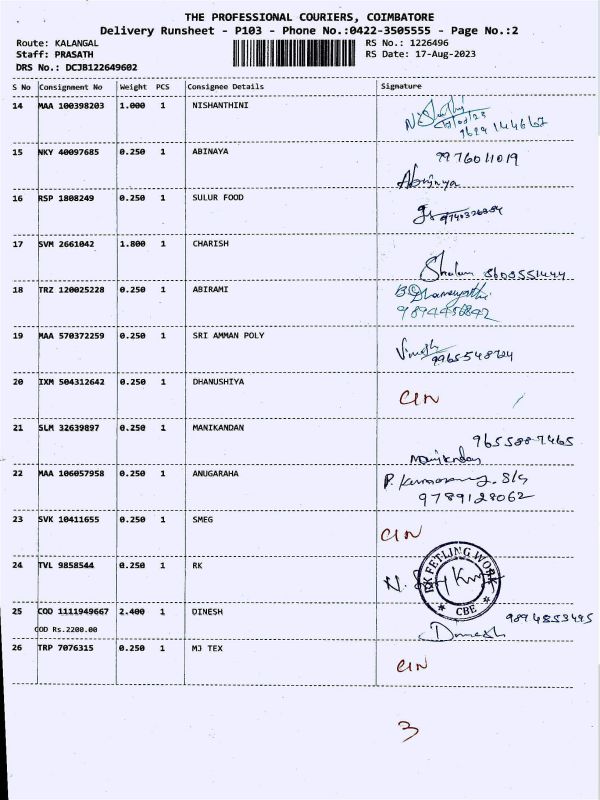 THE PROFESSIONAL COURIERS, COIMBATORE
Delivery Runsheet - P103 - Phone No.:0422-3505555 - Page No.:2
Route: KALANGAL RS No.: 1226496
Staff: PRASATH RS Date: 17-Aug-2023
DRS No.: DCJB122649602
S No Consignment No Weight PCS Consignee Details Signature
14 MAA 100398203 1.000 1 NISHANTHINI
15 NKY 40097685 0.250 1 ABINAYA 9976011019
Abinaya
16 RSP 1808249 0.250 1 SULUR FOOD
17 SVM 2661042 1.800 1 CHARISH
18 TRZ 120025228 0.250 1 ABIRAMI
19 MAA 570372259 0.250 1 SRI AMMAN POLY
20 IXM 504312642 0.250 1 DHANUSHIYA
CIN
21 SLM 32639897 0.250 1 MANIKANDAN
9655887465
Manikandan
22 MAA 106057958 0.250 1 ANUGARAHA
9789128062
23 SVK 10411655 0.250 1 SMEG
CIN
24 TVL 9858544 0.250 1 RK
RK FETLING WORK
CBE
25 COD 1111949667 2.400 1 DINESH 9894853495
COD Rs.2200.00 Dinesh
26 TRP 7076315 0.250 1 MJ TEX
CIN
3